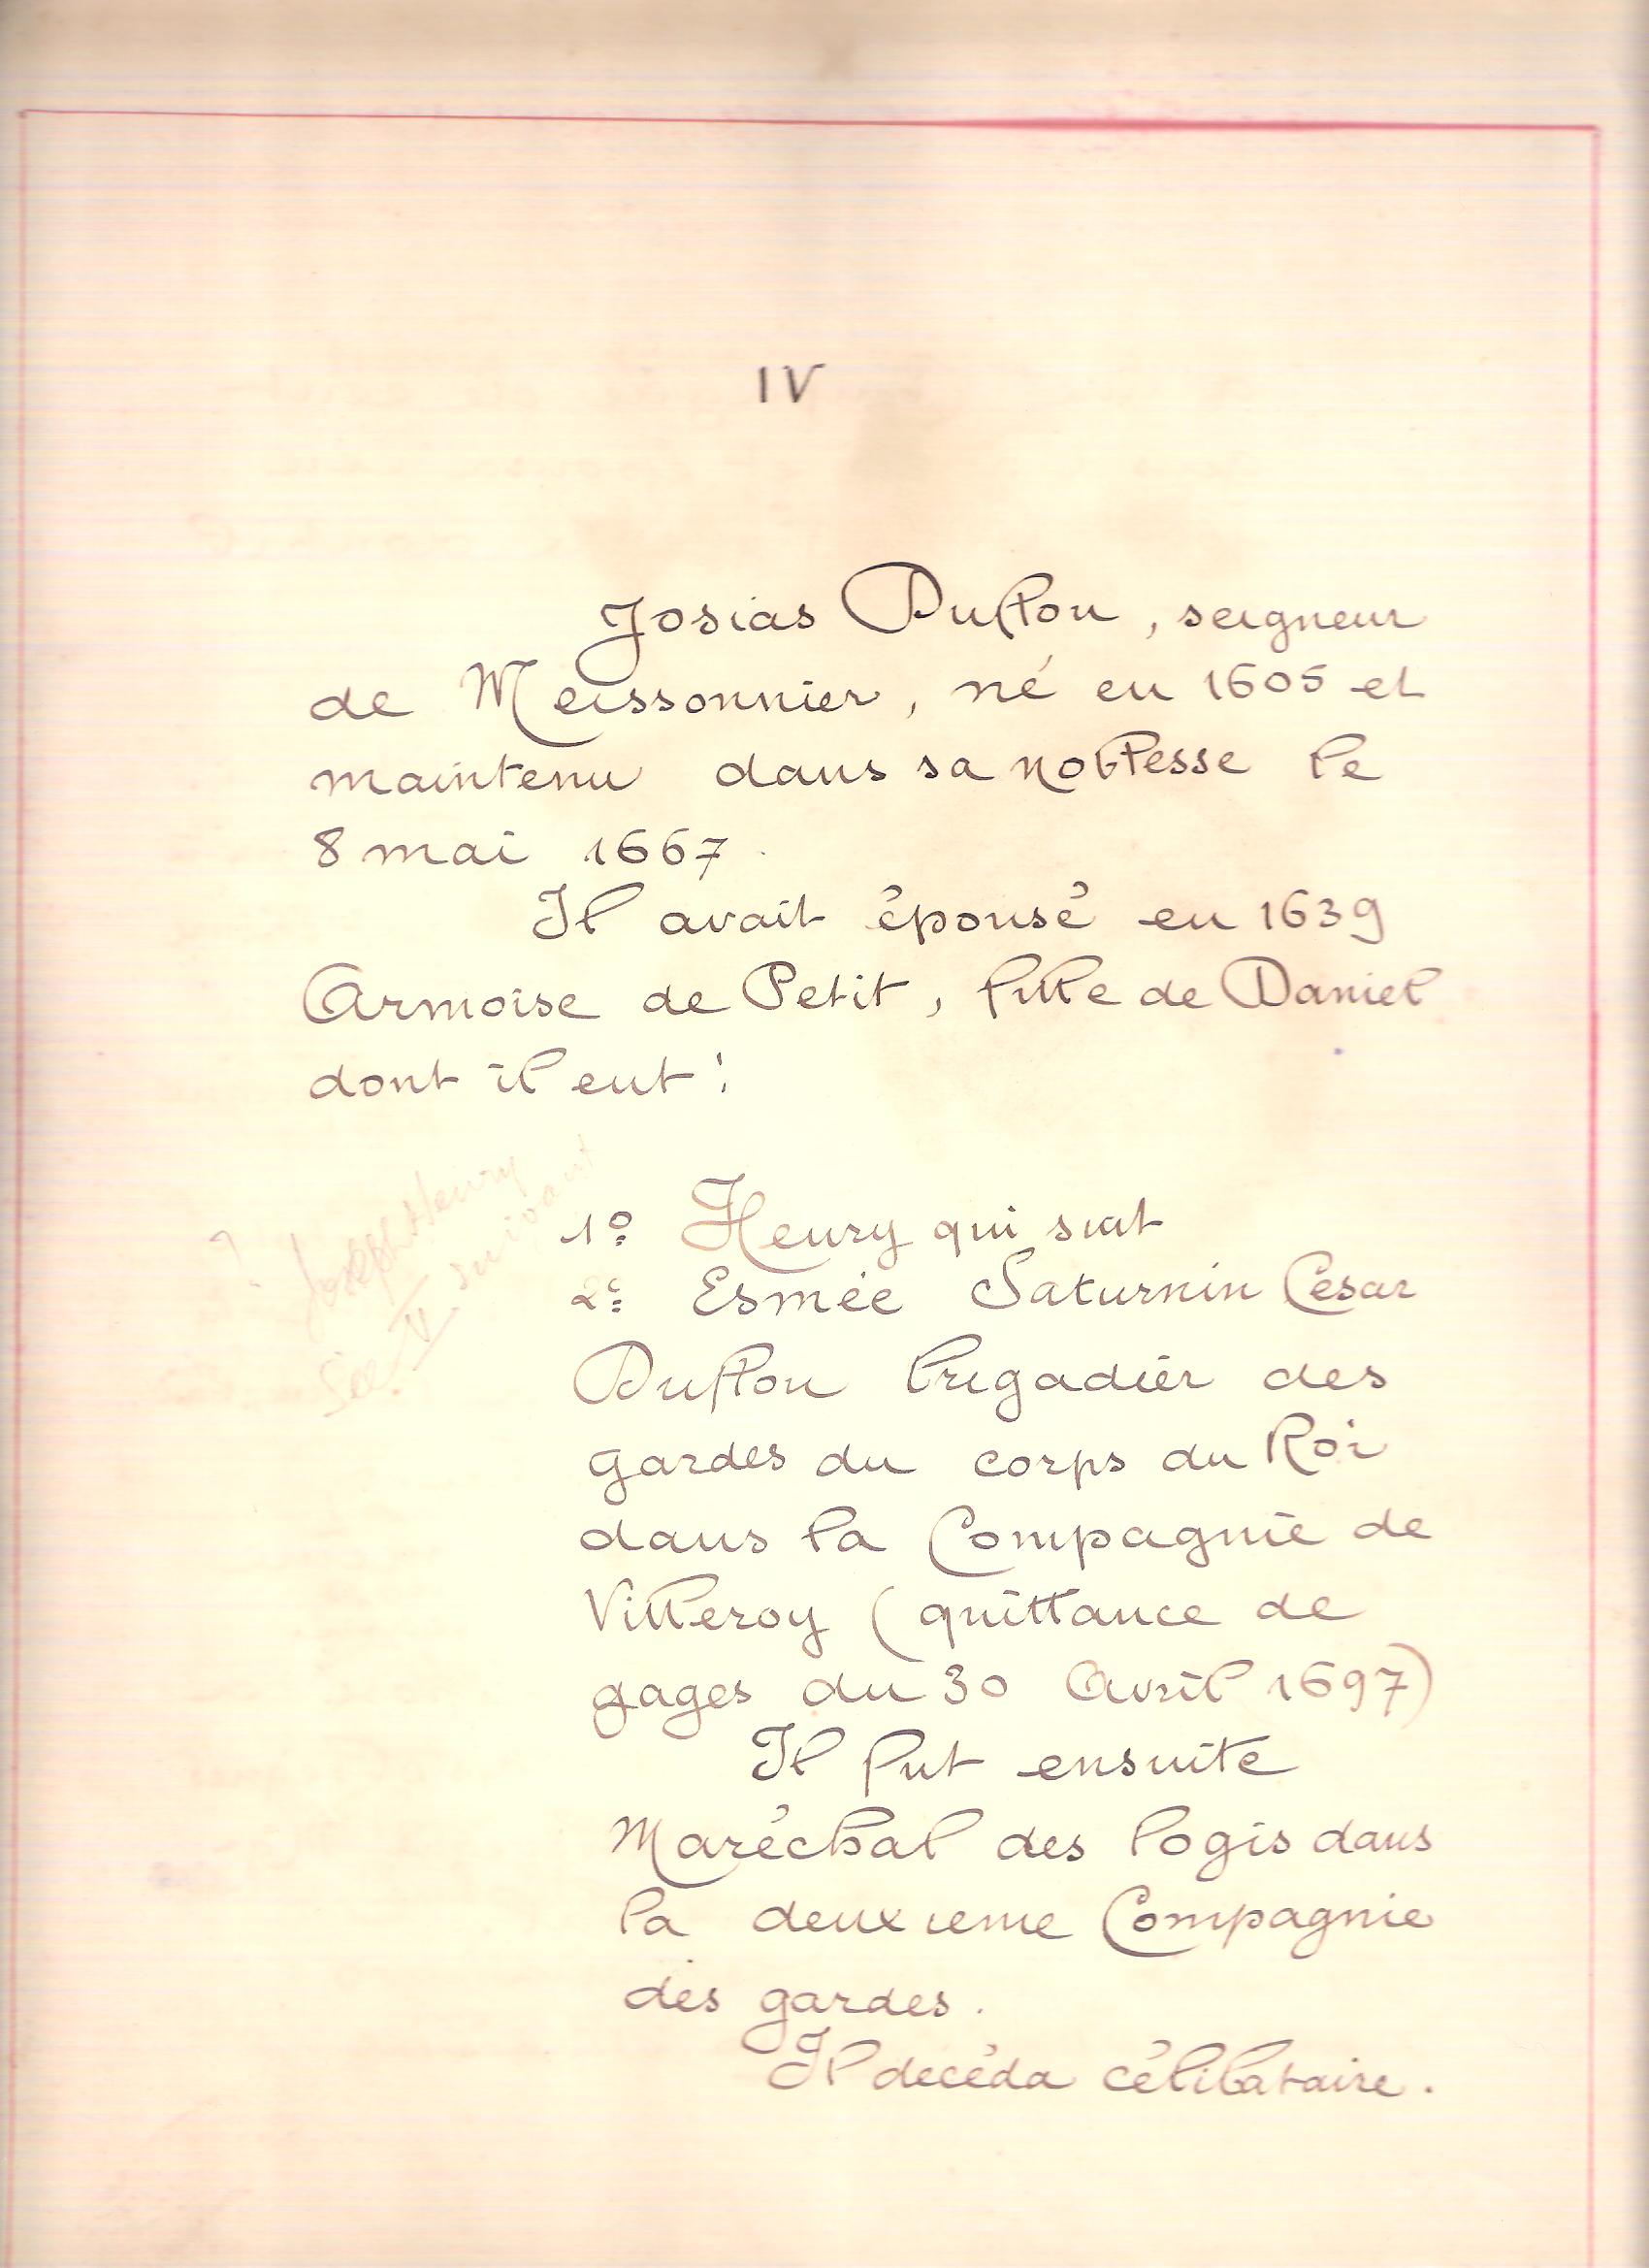 IV
Josias Duflon, seigneur
de Meissonnier, né en 1605 et
maintenu dans sa noblesse le
8 mai 1667.
Il avait épousé en 1639
Armoise de Petit, fille de Daniel
dont il eut :
? Joseph Henry
See V suivant
1º Henry qui suit
2º Esmée Saturnin César
Duflon brigadier des
gardes du corps du Roi
dans la Compagnie de
Villeroy (quittance de
gages du 30 Avril 1697)
Il fut ensuite
Maréchal des logis dans
la deuxieme Compagnie
des gardes.
Il decéda célibataire.